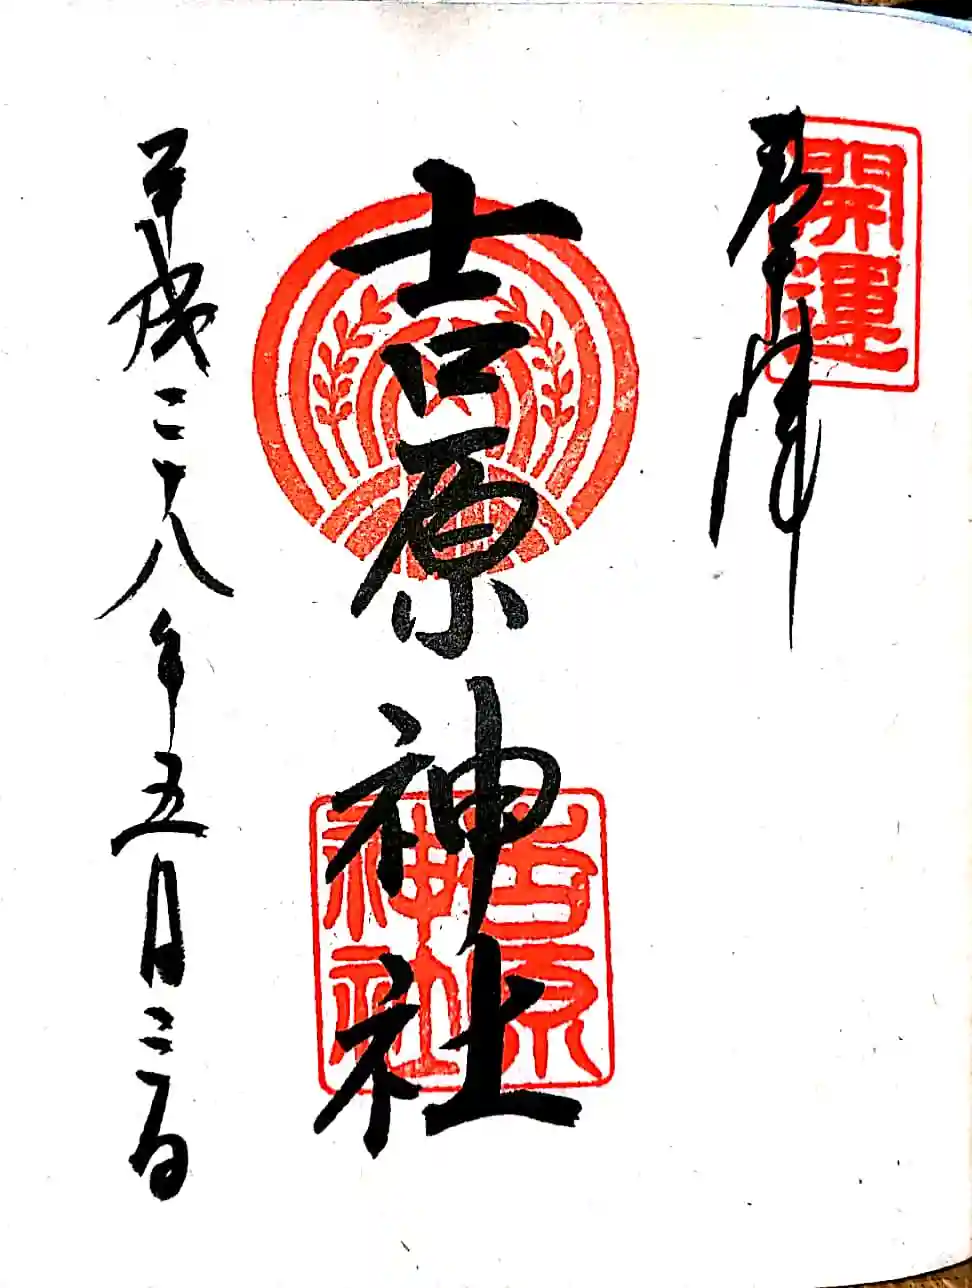 開運
奉拝
吉原神社
吉原
神社
平成二十八年五月三日